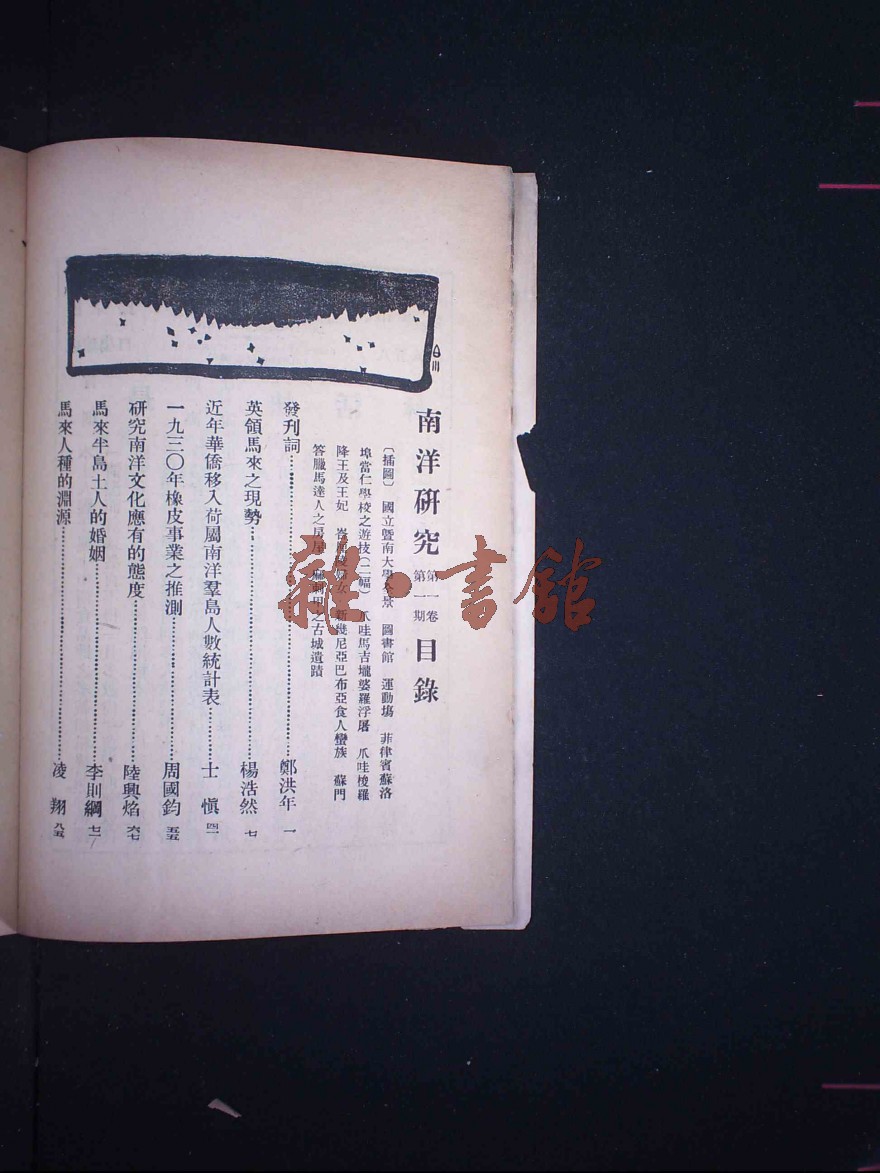 南洋研究 第一卷 第一期 目錄
〔插圖〕 國立暨南大學全景 圖書館 運動塲 菲律賓蘇洛
埠當仁學校之遊技(二幅) 爪哇馬吉壠婆羅浮屠 爪哇梭羅
降王及王妃 峇 婦女 新幾尼亞巴布亞食人蠻族 蘇門
答臘馬達人之房屋 麻剌甲之古城遺蹟
發刊詞……鄭洪年 一
英領馬來之現勢……楊浩然 七
近年華僑移入荷屬南洋羣島人數統計表……士愼 四一
一九三〇年橡皮事業之推測……周國鈞 五五
研究南洋文化應有的態度……陸興焰 六七
馬來半島土人的婚姻……李則綱 七一
馬來人種的淵源……凌翔 八五
雜·書館